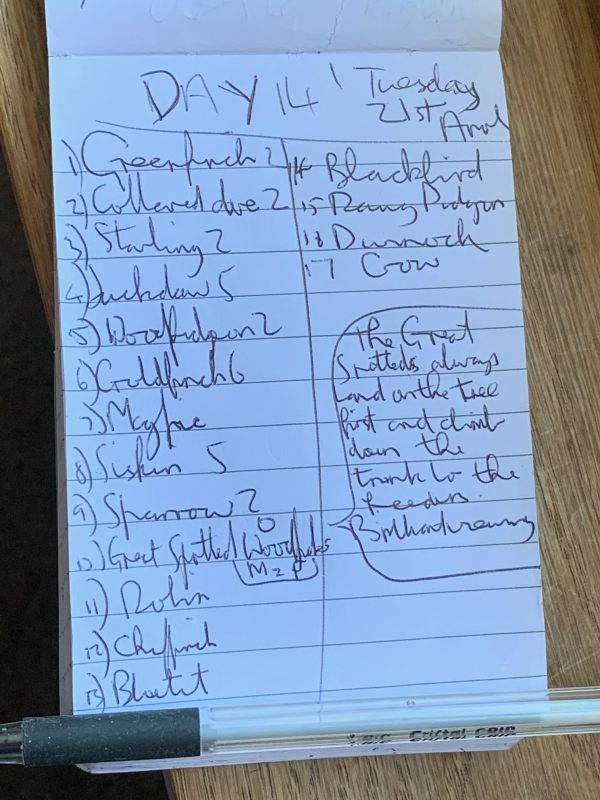 DAY 14
Tuesday
21st
April
1) Greenfinch 2
2) Collered dove 2
3) Starling 2
4) Jackdaw 5
5) Woodpidgeon 2
6) Goldfinch 6
7) Magpie
8) Siskin 5
9) Sparrow 2
10) Great Spotted Woodpeckers
M 2 F
11) Robin
12) Chaffinch
13) Bluetit
14 Blackbird
15 Racing Pidgeon
16 Dunnock
17 Crow
The Great
Spotteds always
land on the tree
first and climb
down the
trunk to the
feeders.
BIC Cristal GRIP